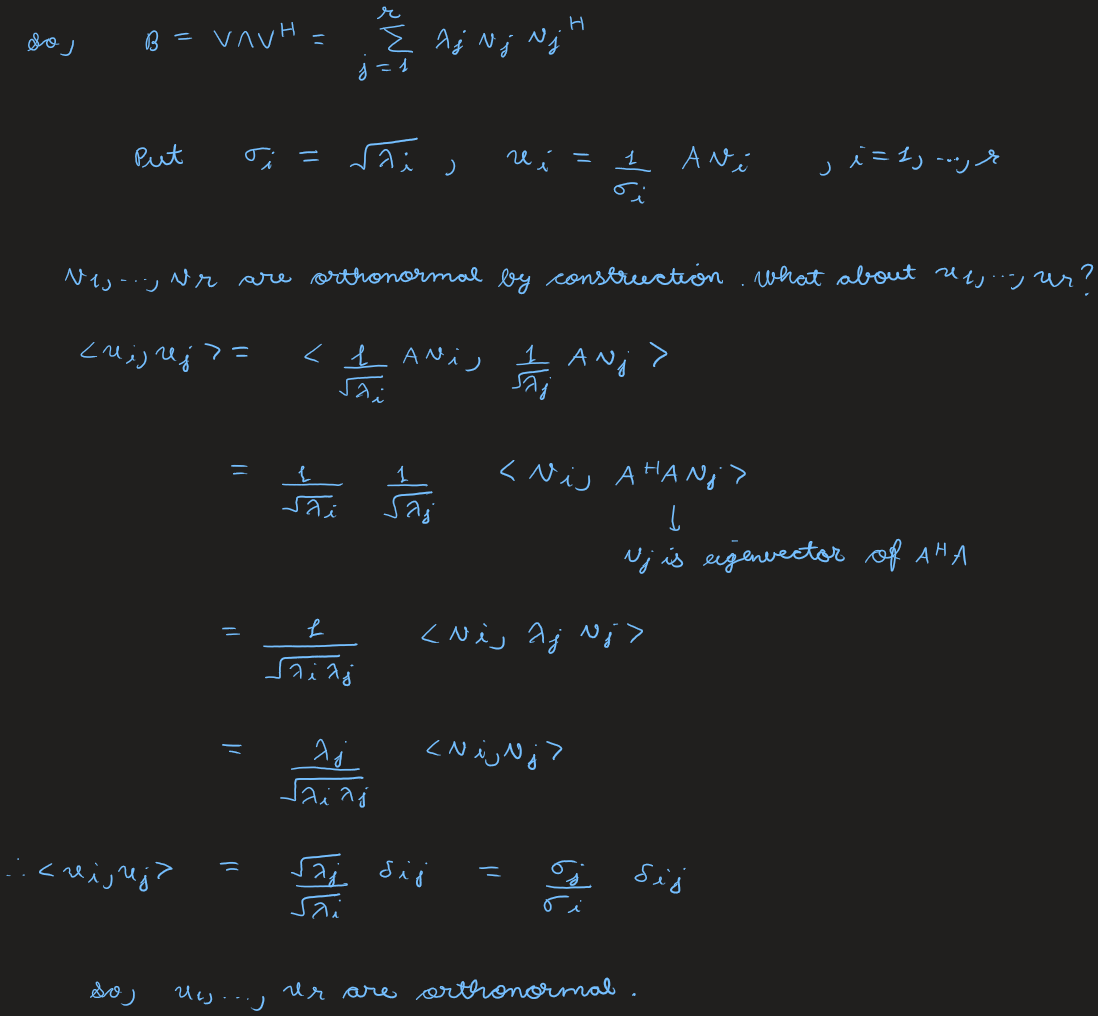 so, B = VΛV^H = Σ_{j=1}^{r} λ_j v_j v_j^H
Put σ_i = √λ_i , u_i = 1/σ_i A v_i , i = 1, ..., r
v_1, ..., v_r are orthonormal by construction. What about u_1, ..., u_r?
<u_i, u_j> = < 1/√λ_i A v_i, 1/√λ_j A v_j >
= 1/√λ_i 1/√λ_j < v_i, A^H A v_j >
↓
v_j is eigenvector of A^H A
= 1/√(λ_i λ_j) < v_i, λ_j v_j >
= λ_j/√(λ_i λ_j) < v_i, v_j >
∴ <u_i, u_j> = √λ_j/√λ_i δ_ij = σ_j/σ_i δ_ij
so, u_1, ..., u_r are orthonormal.